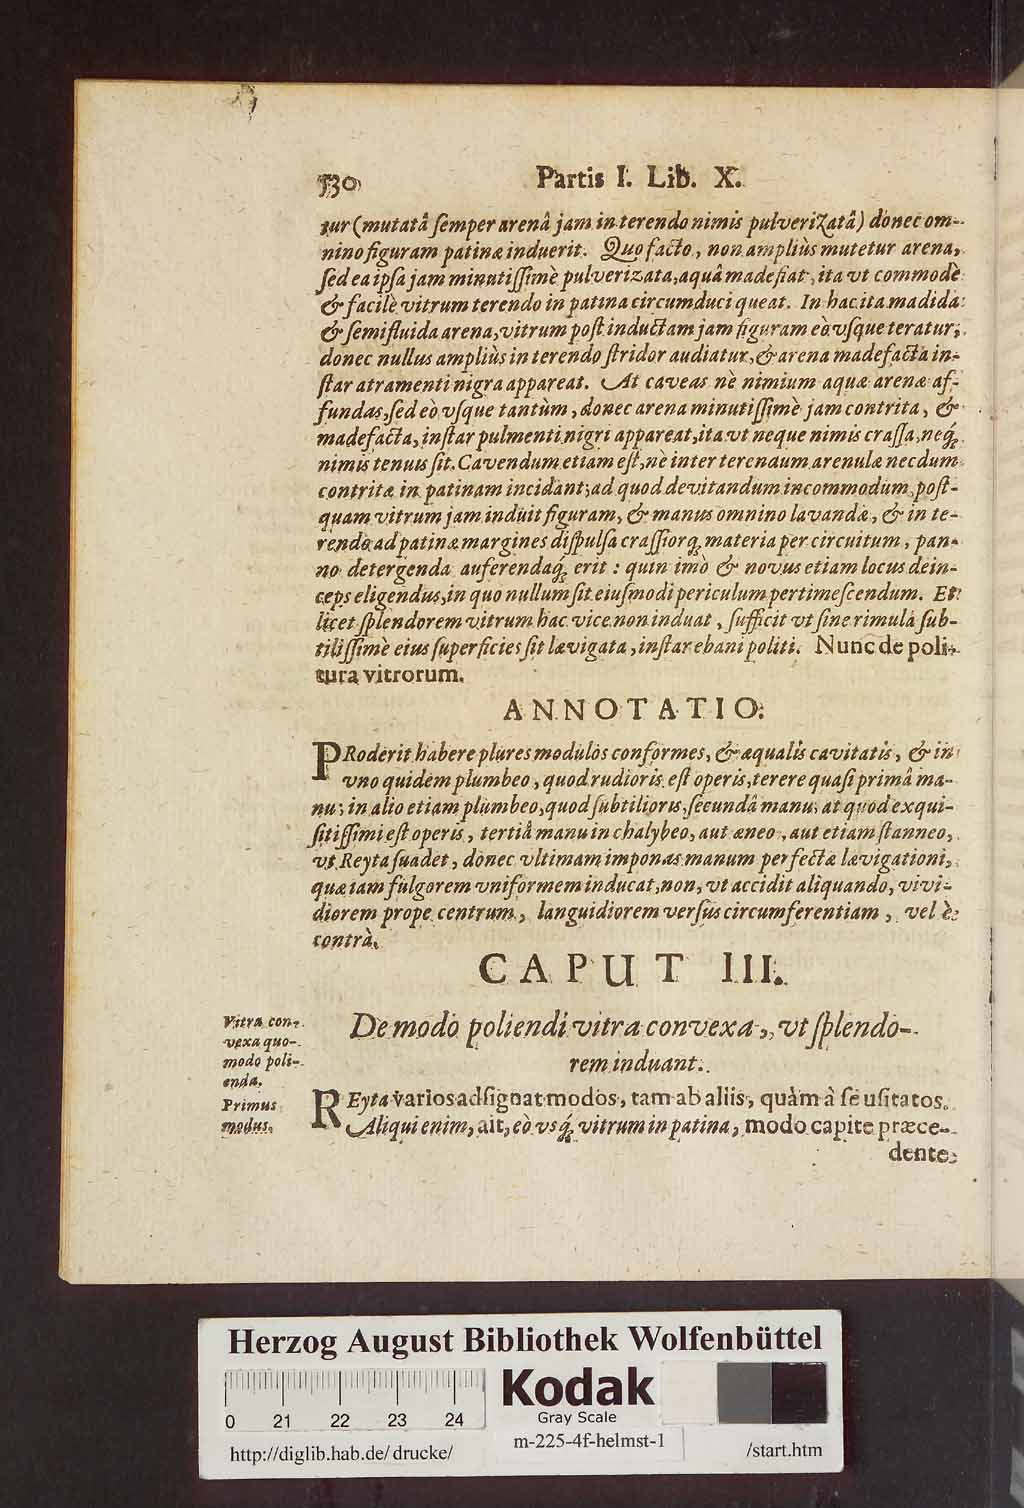 530 Partis I. Lib. X.
tur (mutatâ ſemper arenâ jam in terendo nimis pulveriZatâ) donec om-
nino figuram patinæ induerit. Quo facto, non ampliùs mutetur arena,
ſed ea ipſa jam minutiſſimè pulverizata, aquâ madefiat, ita vt commodè
& facilè vitrum terendo in patina circumduci queat. In hac ita madida
& ſemifluida arena, vitrum poſt inductam jam figuram eò vſque teratur,
donec nullus ampliùs in terendo ſtridor audiatur, & arena madefacta in-
ſtar atramenti nigra appareat. At caveas nè nimium aquæ arenæ af-
fundas, ſed eò vſque tantùm, donec arena minutiſſimè jam contrita, &
madefacta, inſtar pulmenti nigri appareat, ita vt neque nimis craſſa, neq́;
nimis tenuis ſit. Cavendum etiam eſt, nè inter terendum arenulæ necdum
contritæ in patinam incidant; ad quod devitandum incommodum, poſt-
quam vitrum jam induit figuram, & manus omnino lavandæ, & in te-
rendo ad patinæ margines diſpulſa craſſiorq́; materia per circuitum, pan-
no detergenda auferendaq́; erit: quin imò & novus etiam locus dein-
ceps eligendus, in quo nullum ſit eiuſmodi periculum pertimeſcendum. Et
licet ſplendorem vitrum hac vice non induat, ſufficit vt ſine rimulâ ſub-
tiliſſimè eius ſuperficies ſit lævigata, inſtar ebani politi. Nunc de poli-
tura vitrorum.
ANNOTATIO.
PRoderit habere plures modulos conformes, & æqualis cavitatis, & in
vno quidem plumbeo, quod rudioris eſt operis, terere quaſi primâ ma-
nu; in alio etiam plumbeo, quod ſubtilioris, ſecundâ manu; at quod exqui-
ſitiſſimi eſt operis, tertiâ manu in chalybeo, aut æneo, aut etiam ſtanneo,
vt Reyta ſuadet, donec vltimam imponas manum perfectæ lævigationi,
quæ iam fulgorem vniformem inducat, non, vt accidit aliquando, vivi-
diorem prope centrum, languidiorem verſus circumferentiam, vel è
contrà.
CAPUT III.
De modo poliendi vitra convexa, vt ſplendo-
rem induant.
Vitra con-
vexa quo-
modo poli-
enda.
Primus
modus.
REyta varios adſignat modos, tam ab aliis, quàm à ſe uſitatos.
Aliqui enim, ait, eò vsq́; vitrum in patina, modo capite præce-
dente
Herzog August Bibliothek Wolfenbüttel
0 21 22 23 24
Kodak
Gray Scale
http://diglib.hab.de/drucke/ m-225-4f-helmst-1 /start.htm